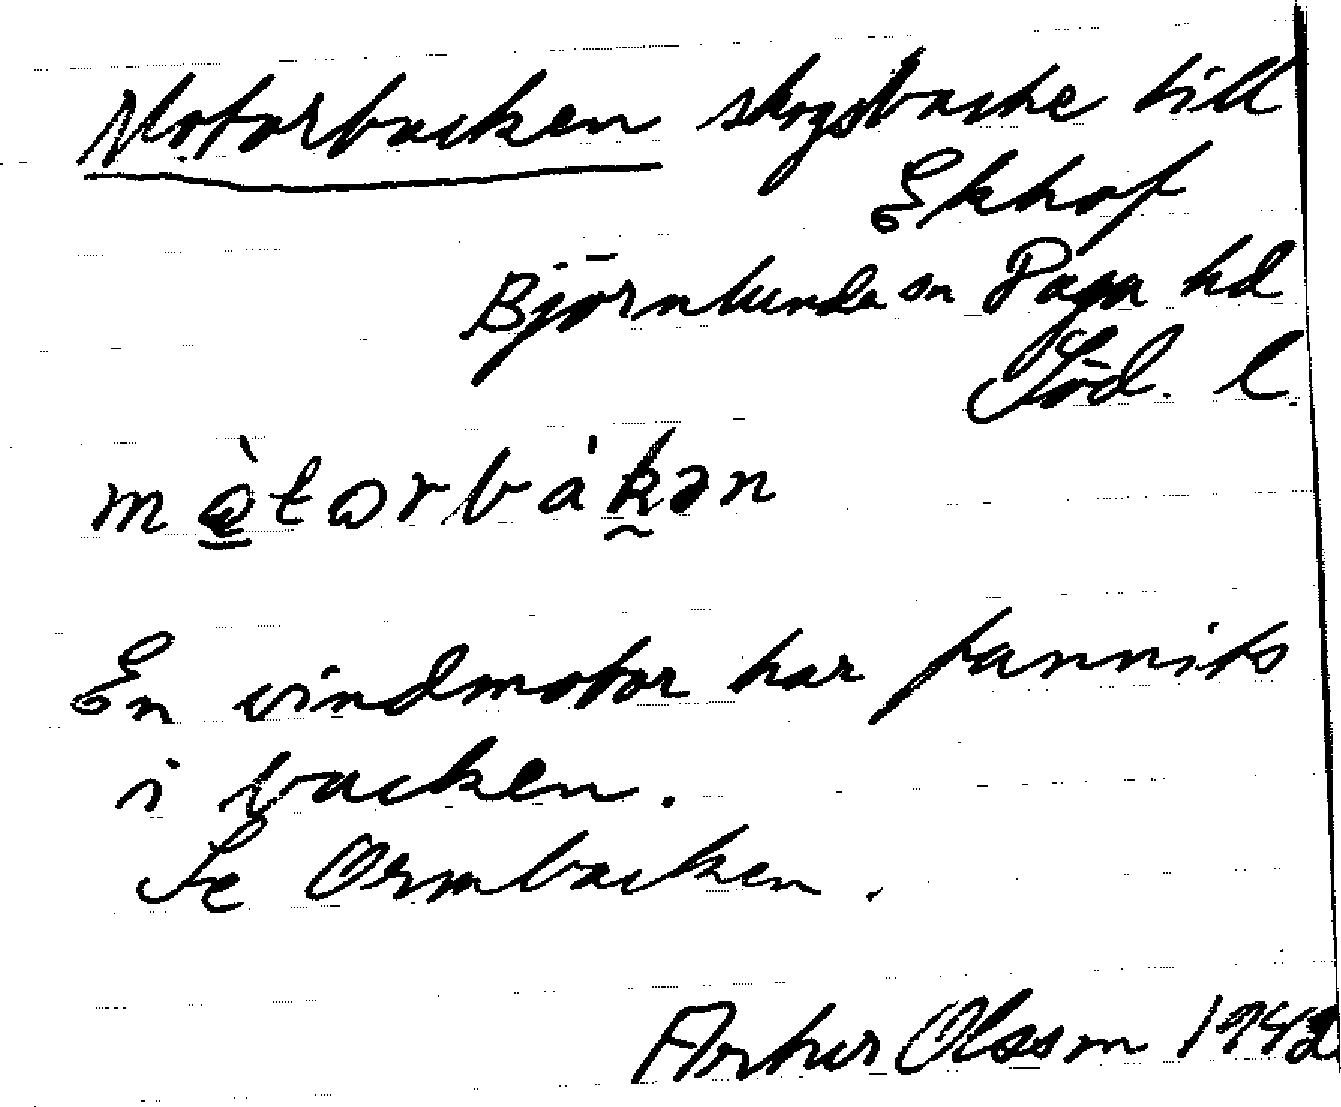 Motorbacken skogsbacke till
Ekhof
Björnlunda sn Daga hd
Söd. l.
En windmotor har funnits
i backen.
Se Ormbacken.
Arthur Olsson 1942